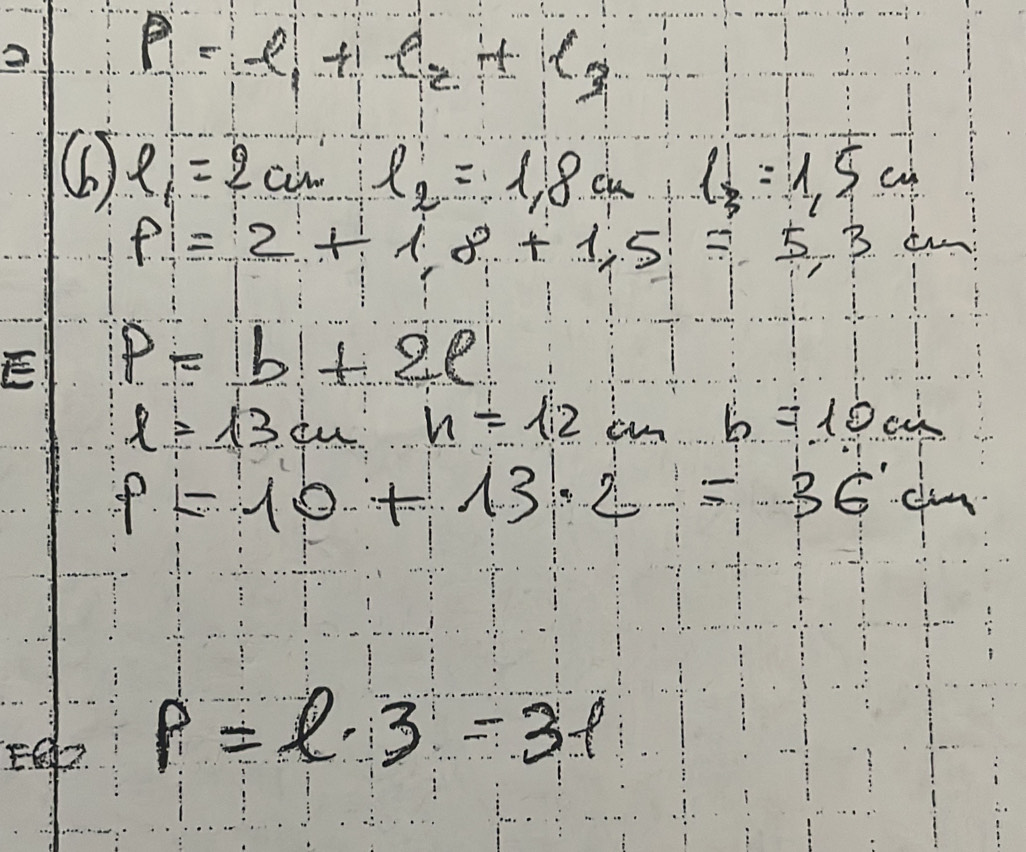 P = l₁ + l₂ + l₃
(b) l₁ = 2 cm l₂ = 1,8 cm l₃ = 1,5 cm
P = 2 + 1,8 + 1,5 = 5,3 cm
E P = b + 2l
l = 13 cm h = 12 cm b = 10 cm
P = 10 + 13 · 2 = 36 cm
P = l · 3 = 3l